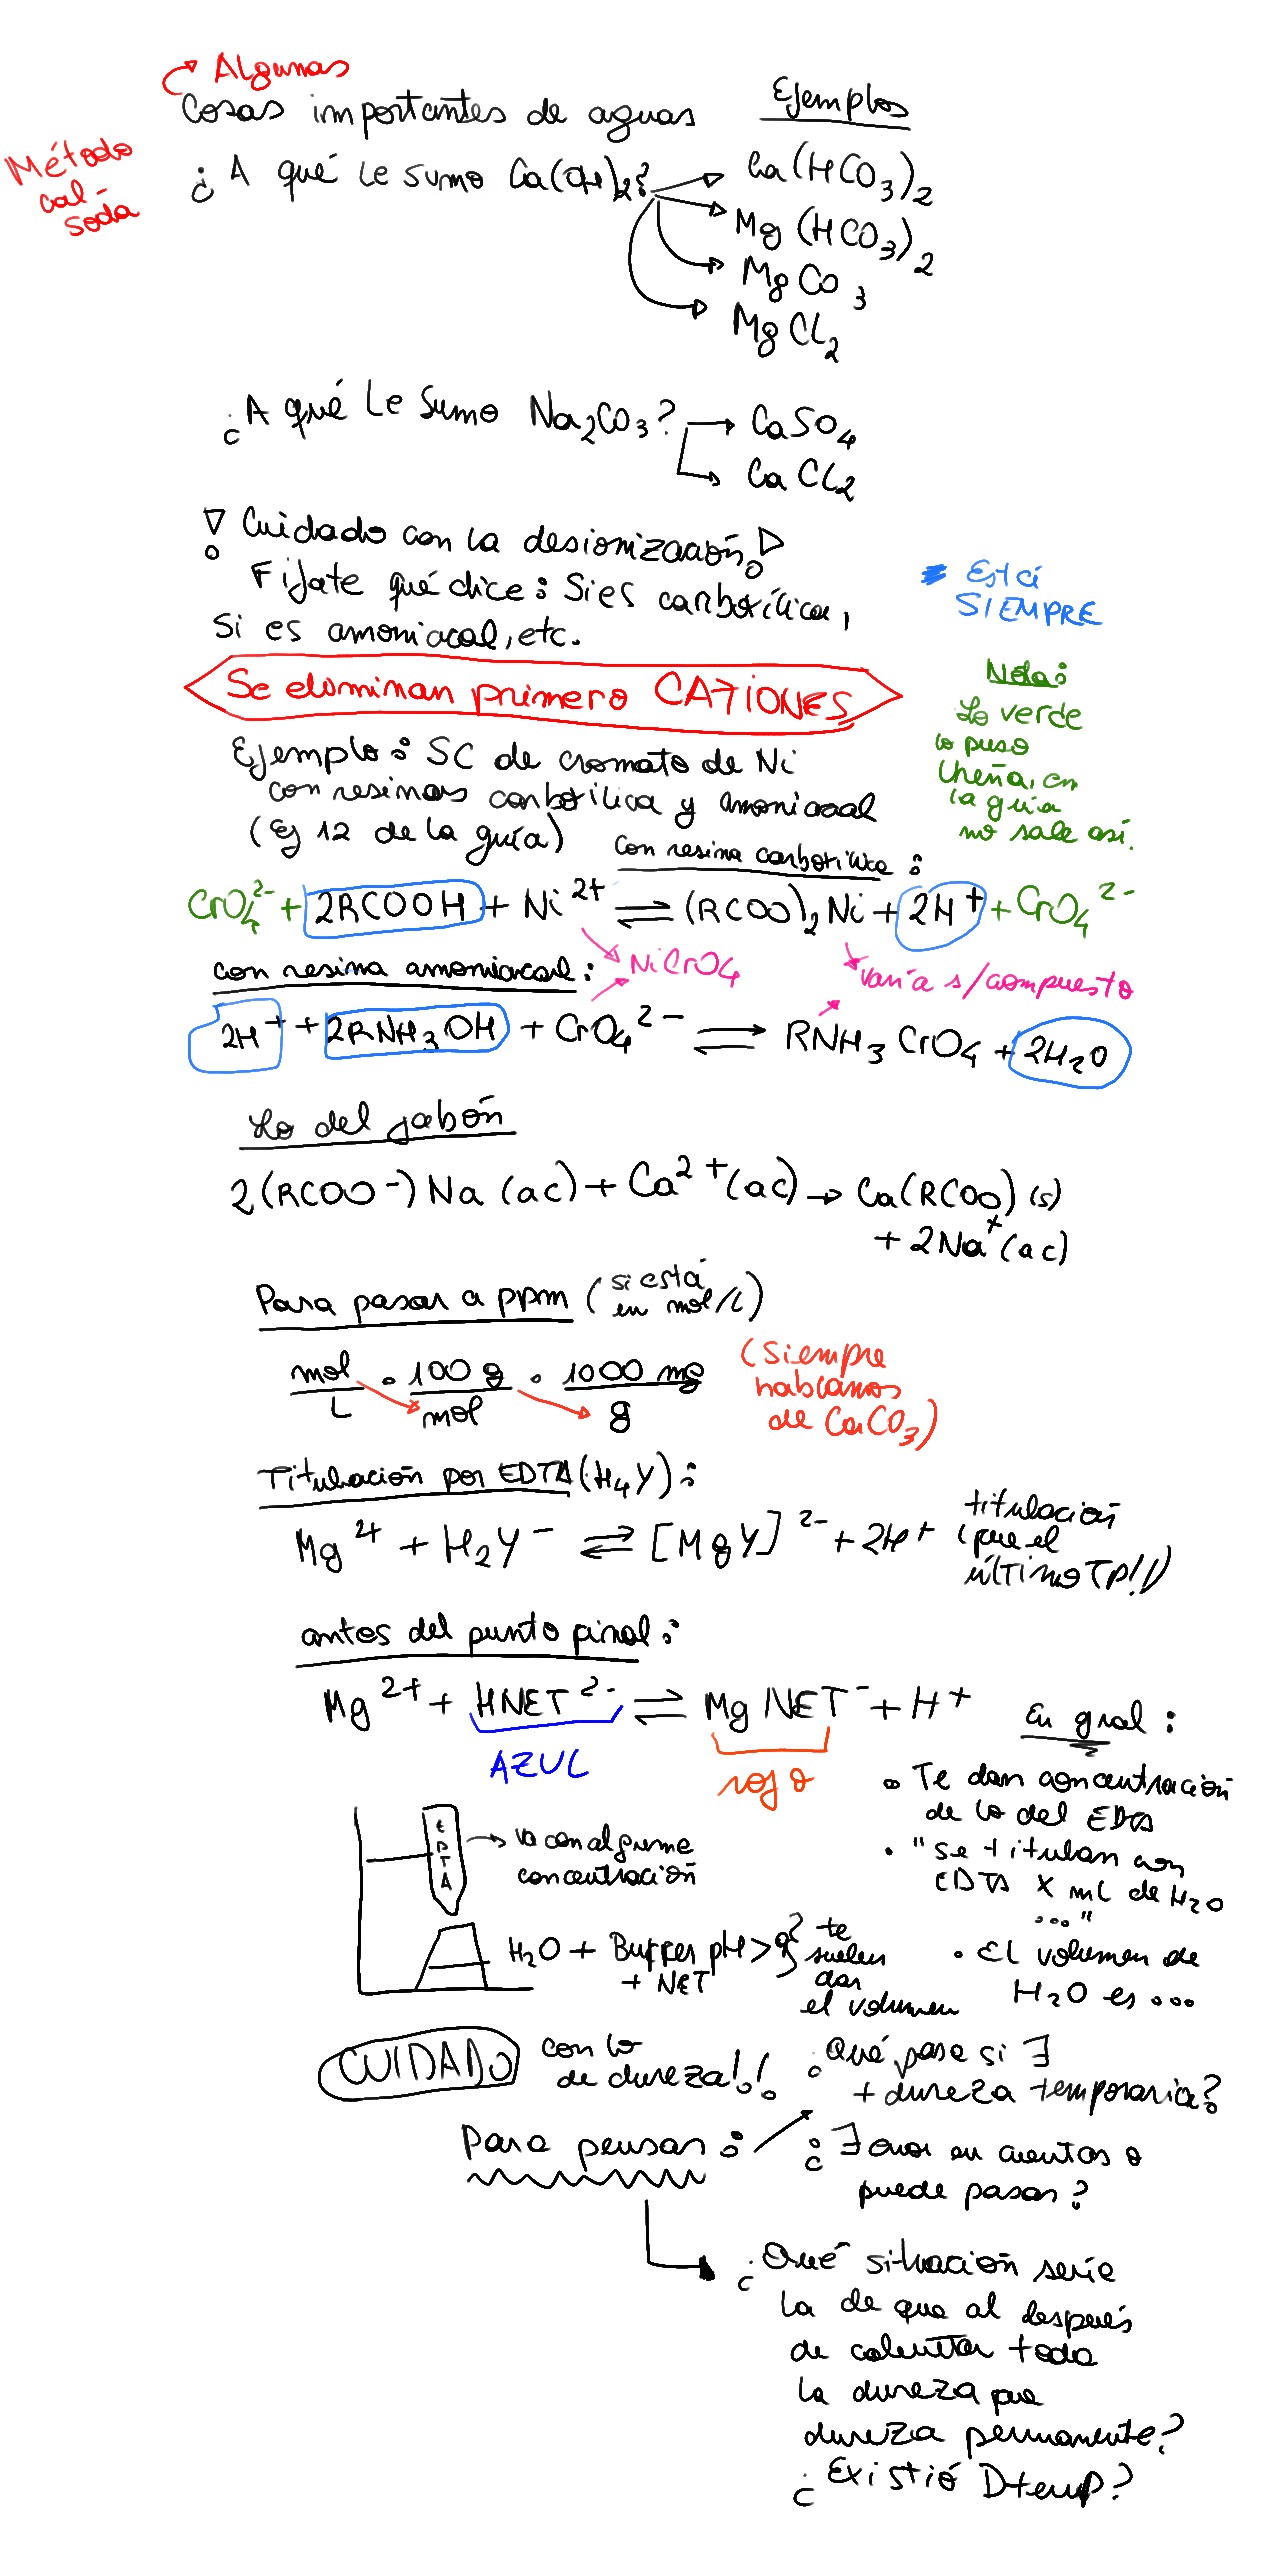 Algunas
Cosas importantes de aguas
Ejemplos
Método
cal-
soda
¿A qué le sumo Ca(OH)₂?
Ca(HCO₃)₂
Mg(HCO₃)₂
MgCO₃
MgCl₂
¿A qué Le Sumo Na₂CO₃?
CaSO₄
CaCl₂
¡Cuidado con la desionización!
Fijate qué dice: Si es carboxílica,
Si es amoniacal, etc.
Está
SIEMPRE
Se eliminan primero CATIONES
Nota:
Lo verde
lo puso
Cheña, en
la guía
no sale así.
Ejemplo: SC de cromato de Ni
con resinas carboxilica y amoniacal
(Ej 12 de la guía)
con resina carboxilica:
CrO₄²⁻ + 2RCOOH + Ni²⁺ ⇌ (RCOO)₂Ni + 2H⁺ + CrO₄²⁻
NiCrO₄
varía s/compuesto
con resina amoniacal:
2H⁺ + 2RNH₃OH + CrO₄²⁻ ⇌ RNH₃CrO₄ + 2H₂O
Lo del jabón
2(RCOO⁻)Na (ac) + Ca²⁺(ac) → Ca(RCOO) (s)
+ 2Na⁺(ac)
Para pasar a ppm (si está
en mol/L)
mol/L · 100 g/mol · 1000 mg/g
(Siempre
hablamos
de CaCO₃)
Titulación por EDTA (H₄Y):
Mg²⁺ + H₂Y⁻ ⇌ [MgY]²⁻ + 2H⁺
titulación
(que el
último TP!!)
antes del punto final:
Mg²⁺ + HNET²⁻ ⇌ MgNET⁻ + H⁺
AZUL
rojo
En gral:
• Te dan concentración
de lo del EDTA
• "se titulan con
EDTA X ml de H₂O
..."
• El volumen de
H₂O es...
EDTA
va con alguna
concentración
H₂O + Buffer pH > 9
+ NET
te
suelen
dar
el volumen
CUIDADO con lo
de dureza!!
Para pensar:
¿Qué pasa si ∃
+ dureza temporaria?
¿∃ error en cuentas o
puede pasar?
¿Qué situación sería
la de que al después
de calentar toda
la dureza fue
dureza permanente?
¿Existió Dtemp?